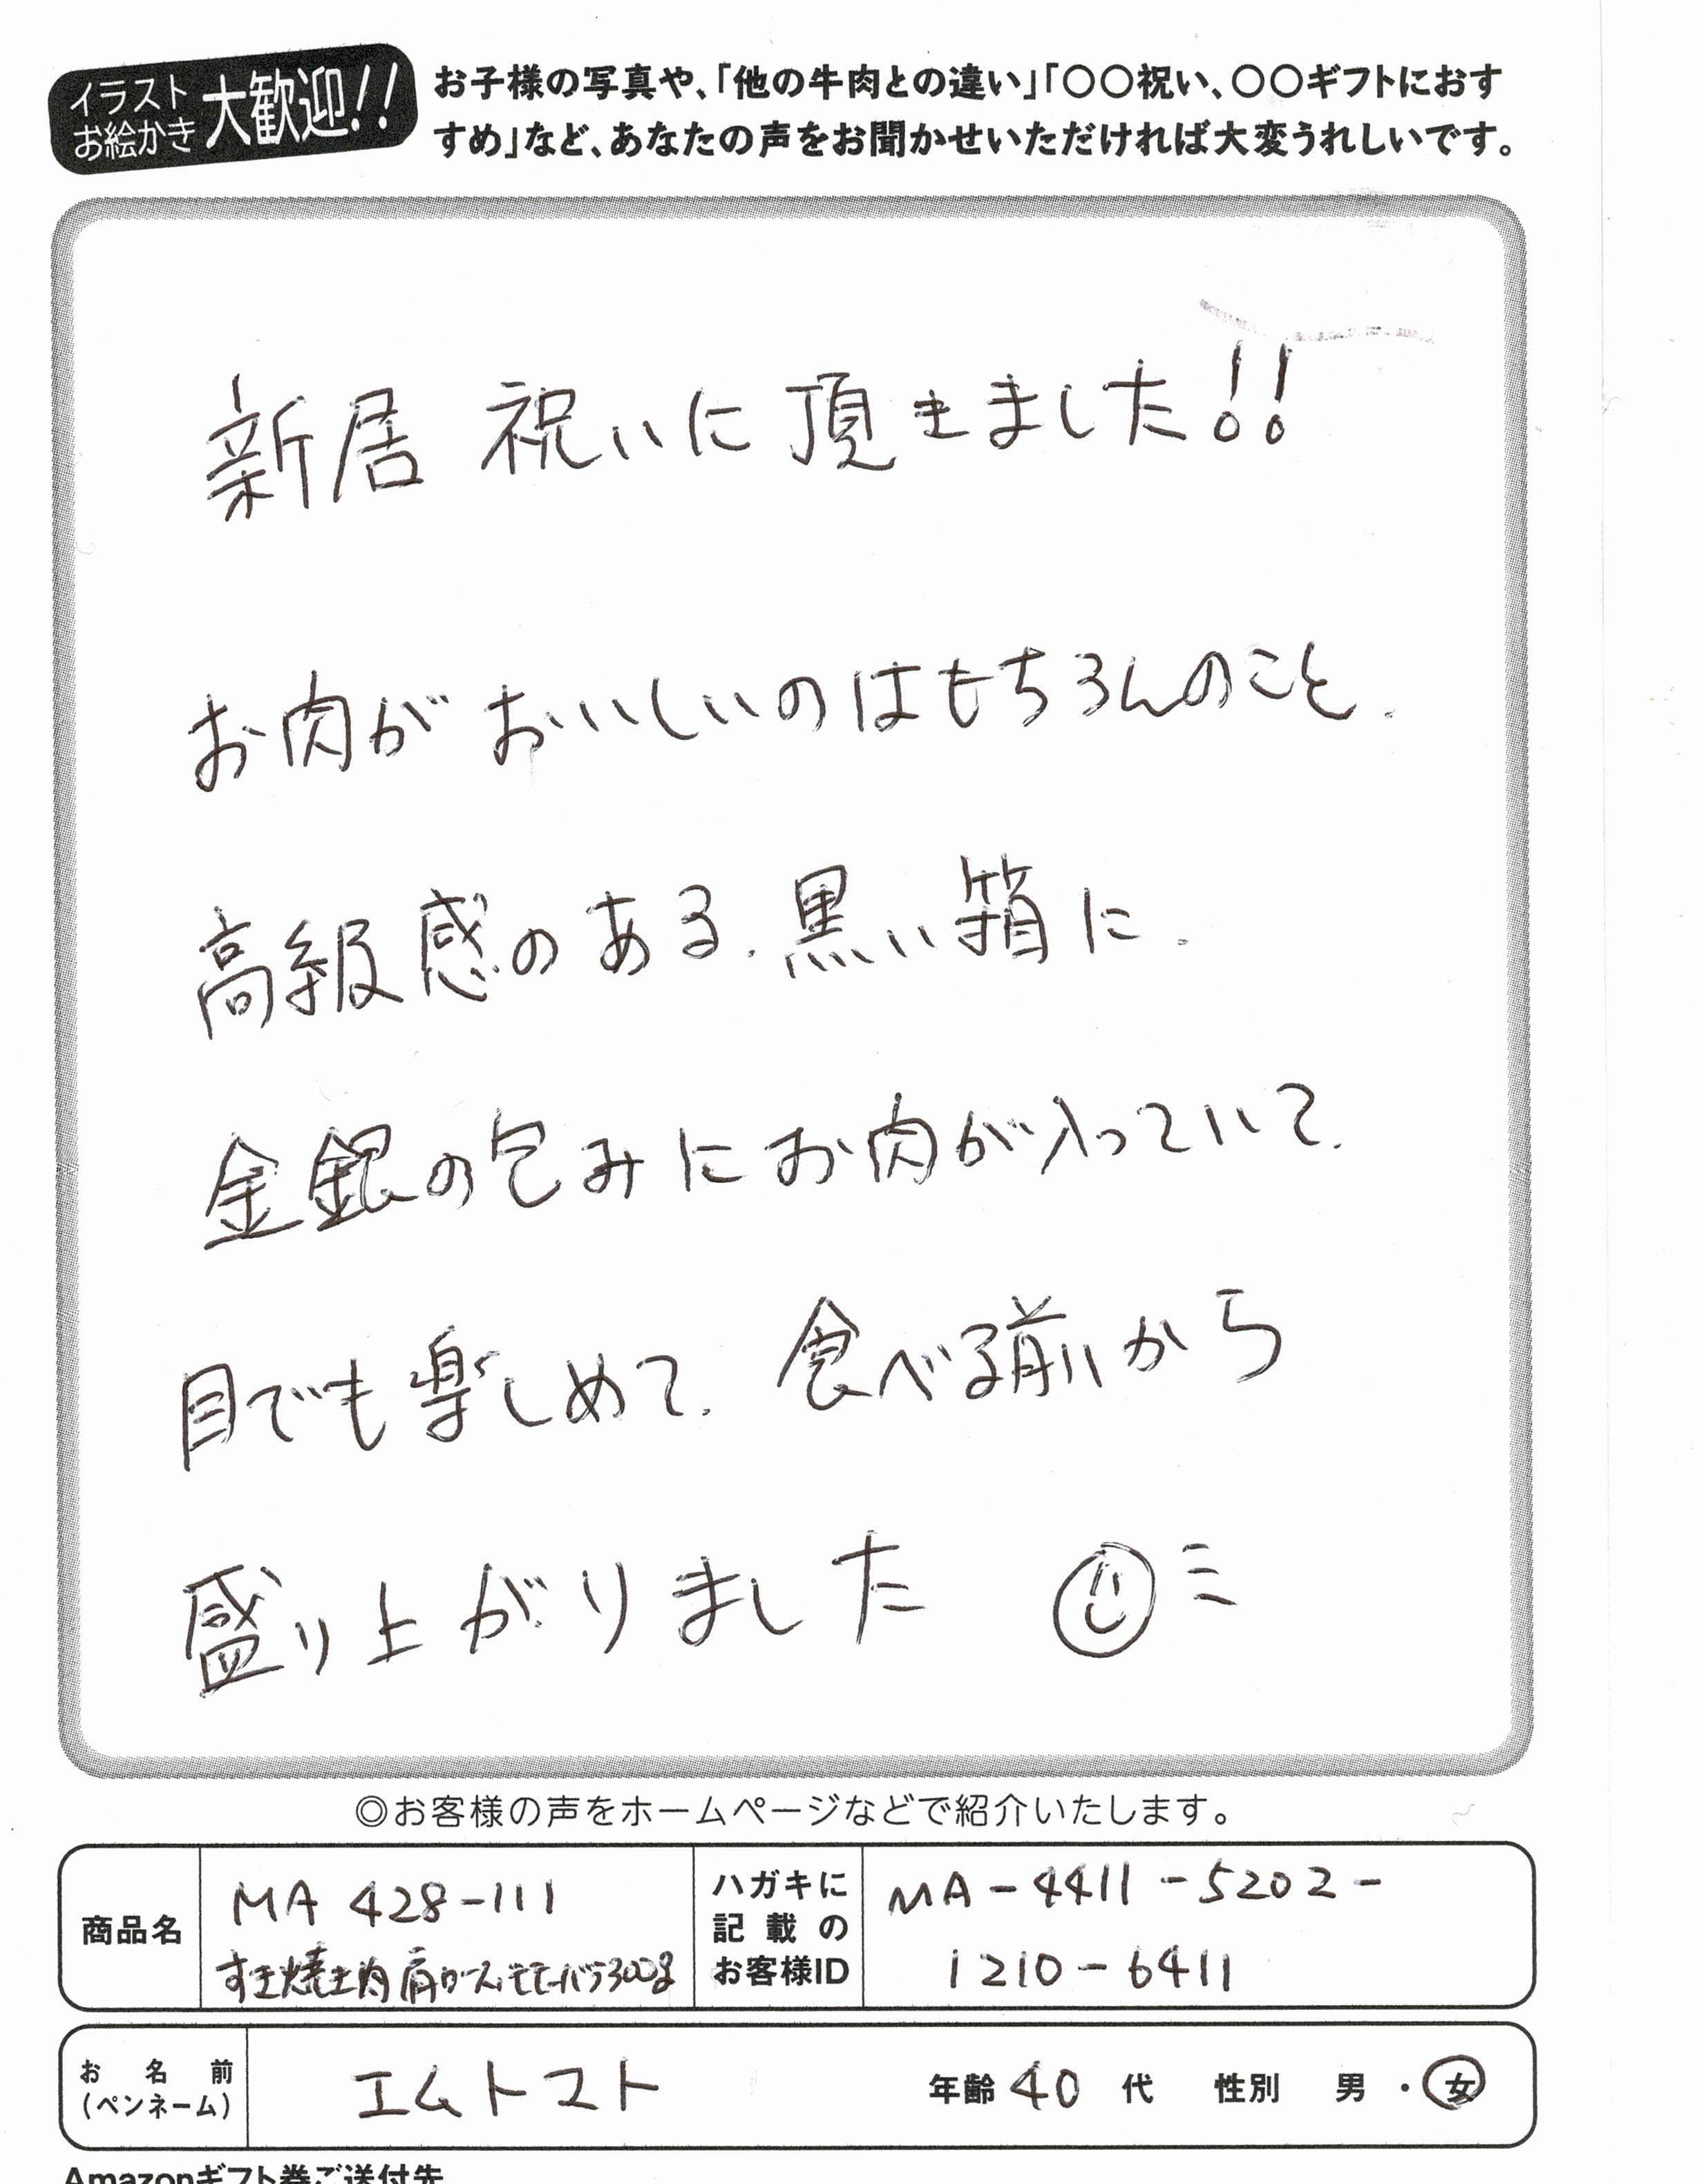 イラスト
お絵かき
大歓迎!!
お子様の写真や、「他の牛肉との違い」「〇〇祝い、〇〇ギフトにおす
すめ」など、あなたの声をお聞かせいただければ大変うれしいです。
新居祝いに頂きました!!
お肉がおいしいのはもちろんのこと、
高級感のある、黒い箱に、
金銀の包みにお肉が入っていて、
目でも楽しめて、食べる前から
盛り上がりました
◎お客様の声をホームページなどで紹介いたします。
商品名
MA 428-111
すき焼き肉 肩ロース、モモ・バラ300g
ハガキに
記載の
お客様ID
MA-4411-5202-
1210-6411
お名前
(ペンネーム)
エムトマト
年齢 40 代 性別 男・女
Amazonギフト券ご送付先